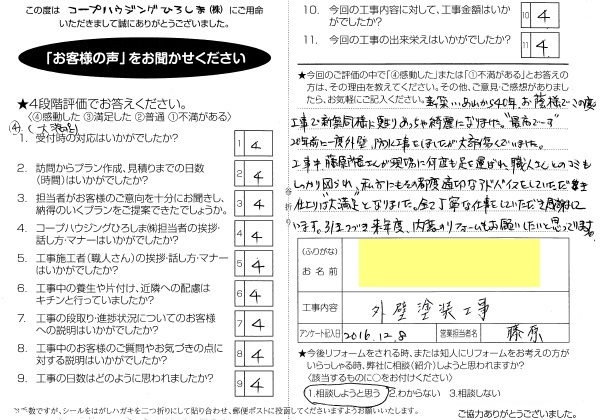 この度は コープハウジングひろしま(株) にご用命
いただきまして誠にありがとうございました。
「お客様の声」をお聞かせください
★4段階評価でお答えください。
〈④感動した ③満足した ②普通 ①不満がある〉
④(大満足)
1. 受付時の対応はいかがでしたか? 1 4
2. 訪問からプラン作成、見積りまでの日数
(時間)はいかがでしたか? 2 4
3. 担当者がお客様のご意向を十分にお聞きし、
納得のいくプランをご提案できたでしょうか。 3 4
4. コープハウジングひろしま㈱担当者の挨拶・
話し方・マナーはいかがでしたか? 4 4
5. 工事施工者(職人さん)の挨拶・話し方・マナー
はいかがでしたか? 5 4
6. 工事中の養生や片付け、近隣への配慮は
キチンと行っていましたか? 6 4
7. 工事の段取り・進捗状況についてのお客様
への説明はいかがでしたか? 7 4
8. 工事中のお客様のご質問やお気づきの点に
対する説明はいかがでしたか? 8 4
9. 工事の日数はどのように思われましたか? 9 4
ご数ですが、シールをはがしハガキを二つ折りにして貼り合わせ、郵便ポストに投函してくださいますようお願いいたします。
谷折り
10. 今回の工事内容に対して、工事金額はいか
がでしたか? 10 4
11. 今回の工事の出来栄えはいかがでしたか? 11 4
★今回のご評価の中で「④感動した」または「①不満がある」とお答えの
方は、その理由を教えてください。その他、ご意見・ご感想がありまし
たら、お気軽にご記入ください。 新築 から40年、お陰様でこの度
工事で新築同様に甦りめっちゃ綺麗になりました。"最高でーす"
20年前に一度外壁、 工事をしましたが大 いでした。
工事中藤原 さんが現場に何度も足を運ばれ、職人さんとのコミも
しっかり図られ、私方にもその都度適切なアドバイスをしていただき
仕上りは大満足となりました。全て丁寧な仕事をしていただき感謝して
います。引きつづき来年度、内装のリフォームもお願いしたいと思ってります。
(ふりがな)
お名前
工事内容 外壁塗装工事
アンケート記入日 2016.12.8 営業担当者名 藤原
★今後リフォームをされる時、または知人にリフォームをお考えの方が
いらっしゃる時、弊社に相談(紹介)しようと思われますか?
〈該当するものに○をお付けください〉
1.相談しようと思う 2.わからない 3.相談しない
ご協力ありがとうございました。